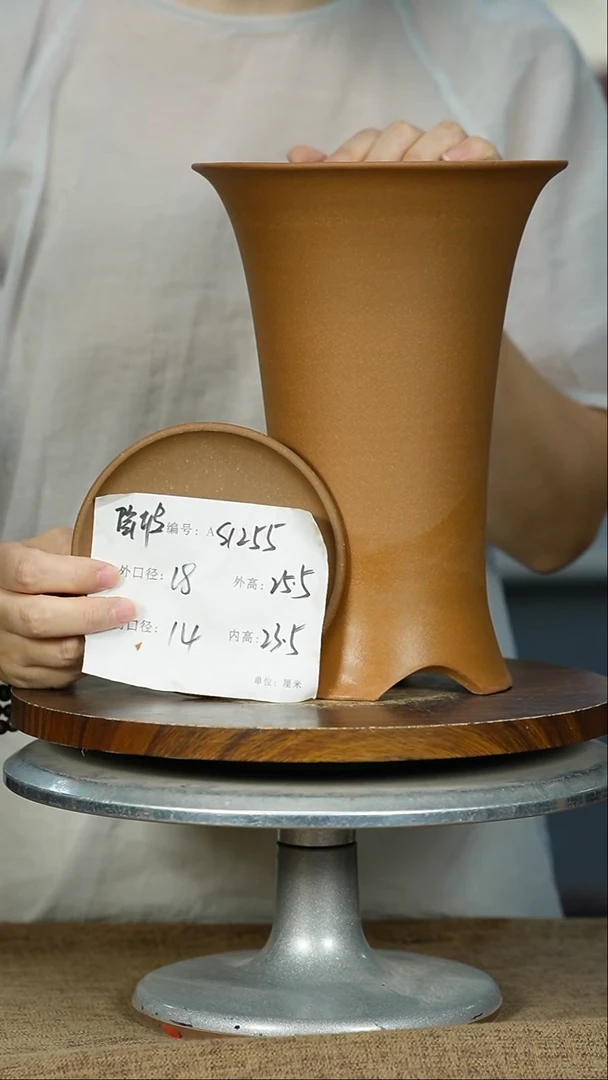 编号: AS1255
外口径: 18 外高: 25.5
口径: 14 内高: 23.5
单位: 厘米